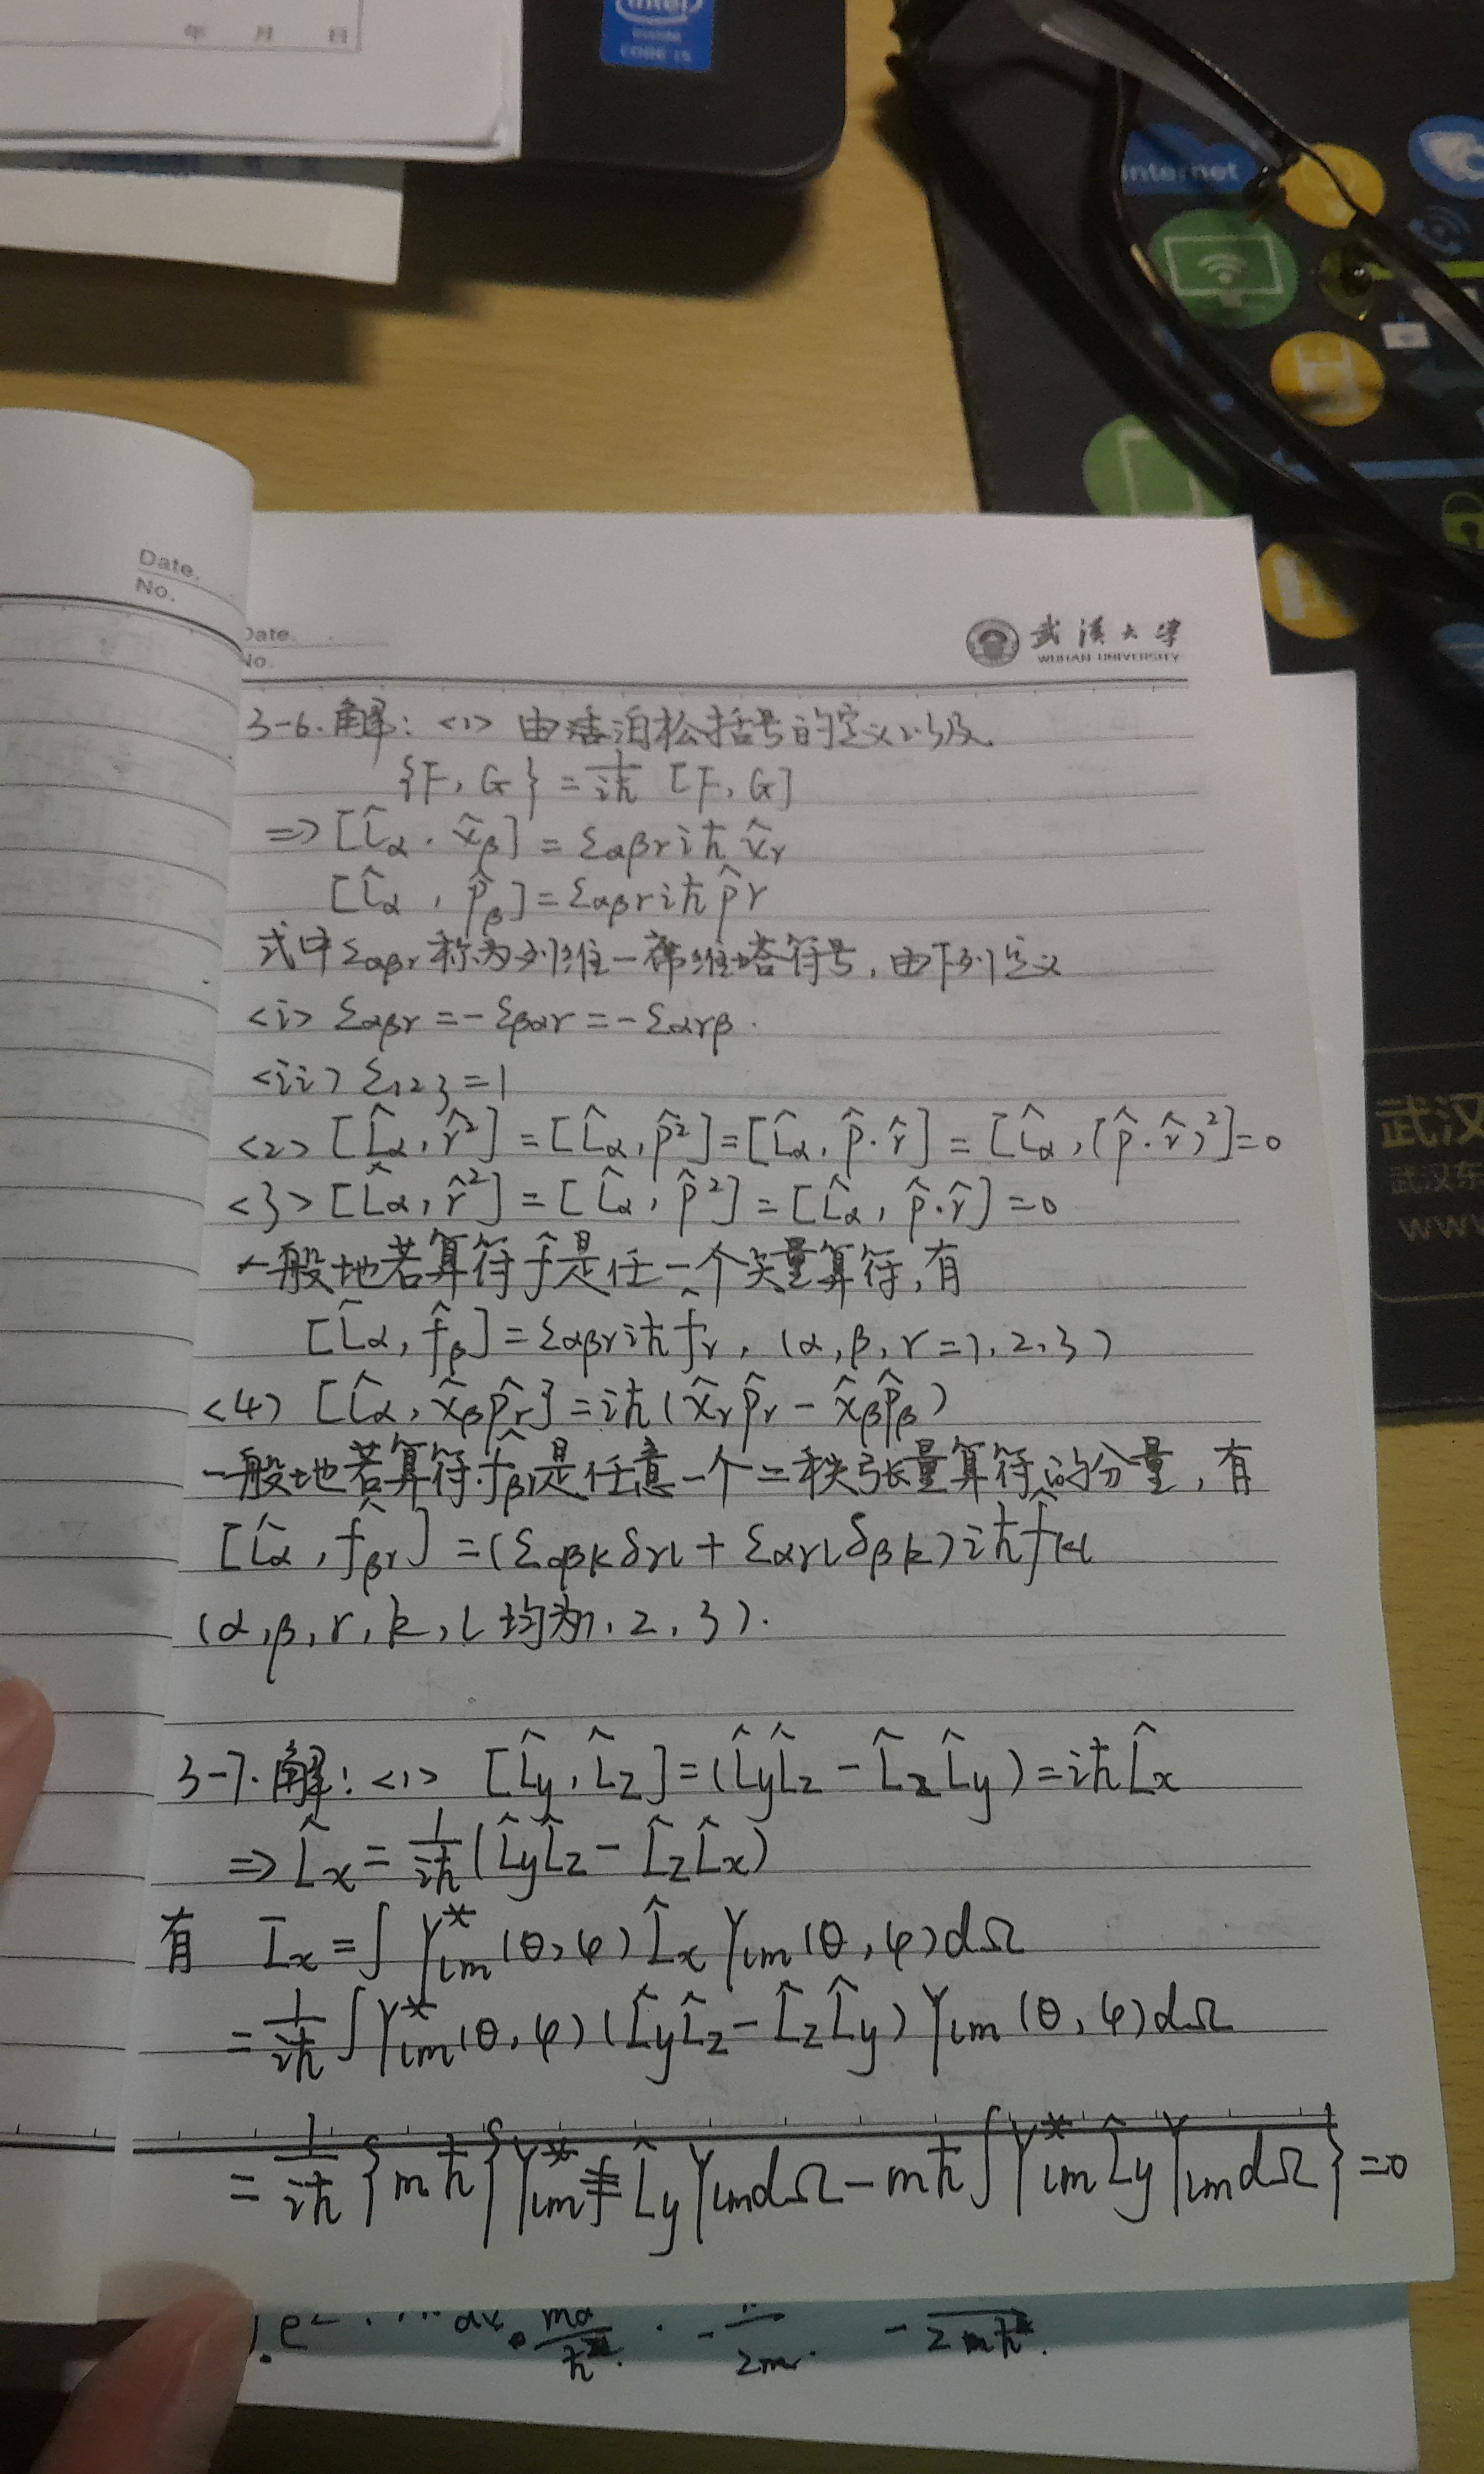 年 月 日
intel
inside
CORE i5
internet
Date.
No.
Date.
No.
武漢大學
WUHAN UNIVERSITY
3-6.解：<1> 由泊松括号的定义以及
{F, G} = 1/iħ [F, G]
=> [L̂α, x̂β] = Σαβr iħ x̂r
[L̂α, p̂β] = Σαβr iħ p̂r
式中Σαβr称为列维—席维塔符号，由下列定义
<i> Σαβr = -Σβαr = -Σαrβ.
<ii> Σ123 = 1
<2> [L̂α, r̂²] = [L̂α, p̂²] = [L̂α, p̂·r̂] = [L̂α, (p̂·r̂)²] = 0
<3> [L̂α, r̂²] = [L̂α, p̂²] = [L̂α, p̂·r̂] = 0
一般地若算符f̂是任一个矢量算符，有
[L̂α, f̂β] = Σαβr iħ f̂r, (α, β, r = 1, 2, 3)
<4> [L̂α, x̂βp̂r] = iħ(x̂rp̂r - x̂βp̂β)
一般地若算符f̂βr是任意一个二秩张量算符的分量，有
[L̂α, f̂βr] = (Σαβkδrl + Σαrlδβk) iħ f̂kl
(α, β, r, k, l 均为1, 2, 3).
3-7.解：<1> [L̂y, L̂z] = (L̂yL̂z - L̂zL̂y) = iħL̂x
=> L̂x = 1/iħ (L̂yL̂z - L̂zL̂x)
有 L̄x = ∫Y*lm(θ, φ) L̂x Ylm(θ, φ)dΩ
= 1/iħ ∫Y*lm(θ, φ)(L̂yL̂z - L̂zL̂y) Ylm(θ, φ)dΩ
= 1/iħ {mħ∫Y*lm L̂y YlmdΩ - mħ∫Y*lm L̂y YlmdΩ} = 0
武汉
武汉东
www
mα
2m.